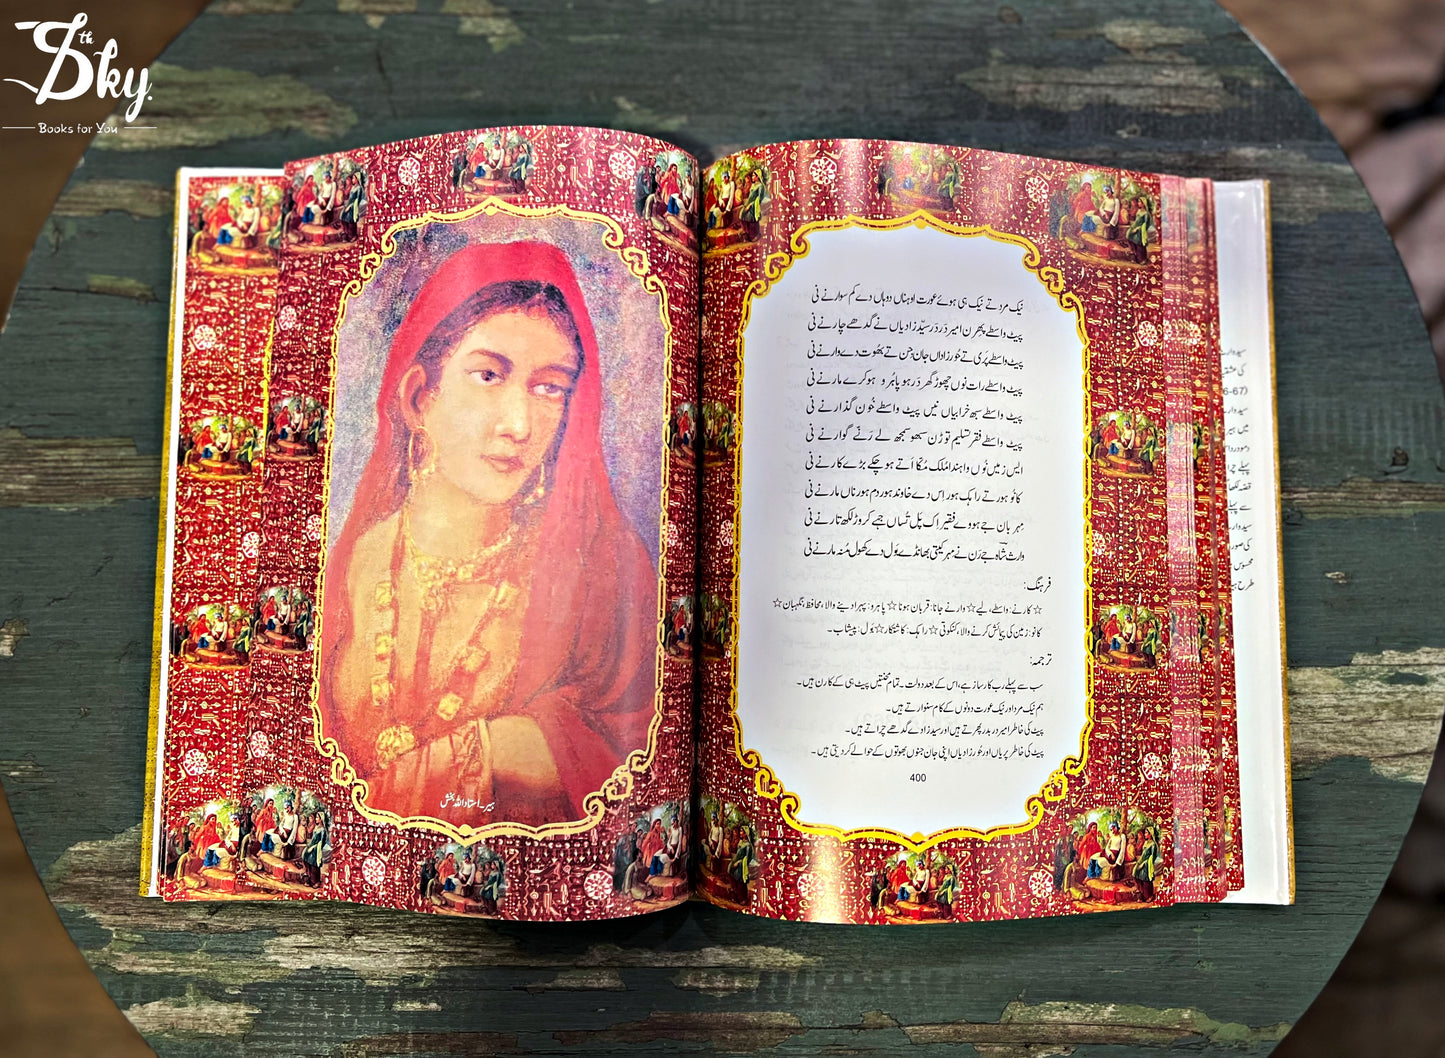 8th Sky.
Books for You
ہیر۔ استاد اللہ بخش
نیک مرد تے نیک ہی ہوئے عورت اوہناں دوہاں دے کم سوارنے نی
پیٹ واسطے پھرن امیر دَر دَر سیّد زادیاں نے گدھے چارنے نی
پیٹ واسطے پَری تے حُور زاداں جان جِن تے بھُوت دے وارنے نی
پیٹ واسطے رات نوں چھوڑ گھر دَر ہو پاہُرو ہوکرے مارنے نی
پیٹ واسطے سبھ خرابیاں نیں پیٹ واسطے خُون گذارنے نی
پیٹ واسطے فقر تسلیم توڑن سبھو سمجھ لے رَنّے گوارنے نی
ایس زمیں نُوں واہندا مُلک مُکا اَتے ہو چکے بڑے کارنے نی
کانو ہور تے راہک ہور اِس دے خاوند ہور دم ہور ناں مارنے نی
مہربان جے ہووے فقیر اک پل تُساں جہے کروڑ لکھ تارنے نی
وارث شاہ جے رَن نے مہر کیتی بھانڈے بَول دے کھول مُنہ مارنے نی
فرہنگ:
☆ کارنے: واسطے، لیے ☆ وارنے جانا: قربان ہونا ☆ پاہرو: پہرا دینے والا، محافظ، نگہبان ☆
کانو: زمین کی پیمائش کرنے والا، کنکوتی ☆ راہک: کاشتکار ☆ بَول: پیشاب۔
ترجمہ:
سب سے پہلے رب کارساز ہے، اس کے بعد دولت۔ تمام محنتیں پیٹ ہی کے کارن ہیں۔
ہم نیک مرد اور نیک عورت دونوں کے کام سنوارتے ہیں۔
پیٹ کی خاطر امیر در بدر پھرتے ہیں اور سید زادے گدھے چراتے ہیں۔
پیٹ کی خاطر پریاں اور حُور زادیاں اپنی جان جنوں بھوتوں کے حوالے کر دیتی ہیں۔
400